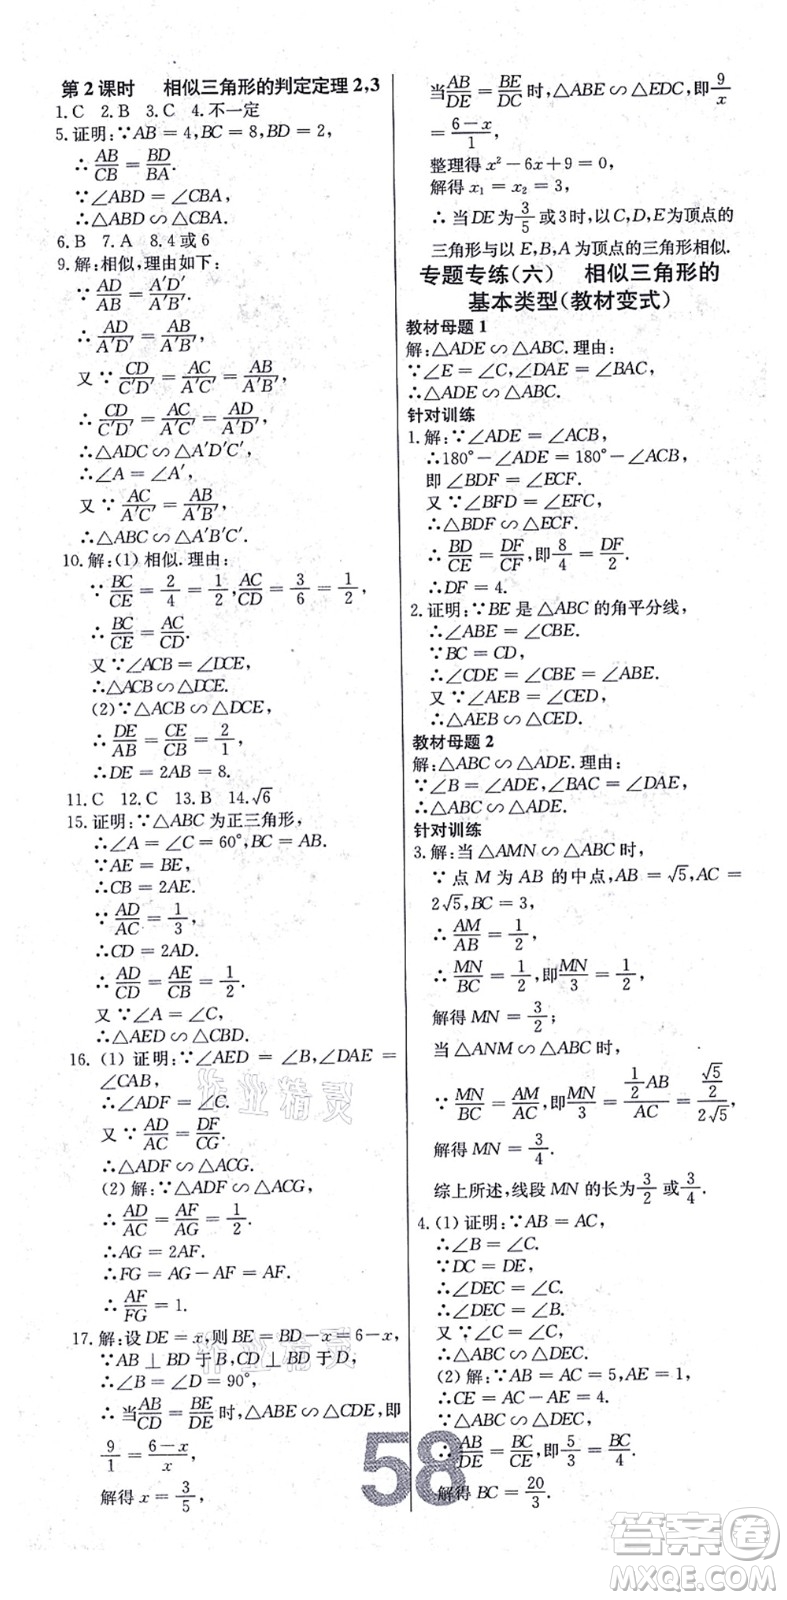 第2课时 相似三角形的判定定理2,3
1.C 2.B 3.C 4.不一定
5.证明:∵AB=4,BC=8,BD=2,
∴AB/CB=BD/BA.
∵∠ABD=∠CBA,
∴△ABD∽△CBA.
6.B 7.A 8.4或6
9.解:相似,理由如下:
∵AD/A′D′=AB/A′B′,
∴AD/A′D′=AB/A′B′,
又∵CD/C′D′=AC/A′C′=AB/A′B′,
∴CD/C′D′=AC/A′C′=AD/A′D′,
∴△ADC∽△A′D′C′,
∴∠A=∠A′,
又∵AC/A′C′=AB/A′B′,
∴△ABC∽△A′B′C′.
10.解:(1)相似.理由:
∵BC/CE=2/4=1/2,AC/CD=3/6=1/2,
∴BC/CE=AC/CD.
又∵∠ACB=∠DCE,
∴△ACB∽△DCE.
(2)∵△ACB∽△DCE,
∴DE/AB=CE/CB=2/1,
∴DE=2AB=8.
11.C 12.C 13.B 14.√6
15.证明:∵△ABC为正三角形,
∴∠A=∠C=60°,BC=AB.
∵AE=BE,
∴CB=2AE.
∵AD/AC=1/3,
∴CD=2AD.
∴AD/CD=AE/CB=1/2.
又∵∠A=∠C,
∴△AED∽△CBD.
16.(1)证明:∵∠AED=∠B,∠DAE=
∠CAB,
∴∠ADF=∠C.
又∵AD/AC=DF/CG.
∴△ADF∽△ACG.
(2)解:∵△ADF∽△ACG,
∴AD/AC=AF/AG=1/2.
∴AG=2AF.
∴FG=AG−AF=AF.
∴AF/FG=1.
17.解:设DE=x,则BE=BD−x=6−x,
∵AB⊥BD于B,CD⊥BD于D,
∴∠B=∠D=90°,
∴当AB/CD=BE/DE时,△ABE∽△CDE,即
9/1=6−x/x,
解得x=3/5,
当AB/DE=BE/DC时,△ABE∽△EDC,即9/x
=6−x/1,
整理得x²−6x+9=0,
解得x₁=x₂=3,
∴当DE为3/5或3时,以C,D,E为顶点的
三角形与以E,B,A为顶点的三角形相似.
专题专练(六) 相似三角形的
基本类型(教材变式)
教材母题1
解:△ADE∽△ABC.理由:
∵∠E=∠C,∠DAE=∠BAC,
∴△ADE∽△ABC.
针对训练
1.解:∵∠ADE=∠ACB,
∴180°−∠ADE=180°−∠ACB,
即∠BDF=∠ECF.
又∵∠BFD=∠EFC,
∴△BDF∽△ECF.
∴BD/CE=DF/CF,即8/4=DF/2.
∴DF=4.
2.证明:∵BE是△ABC的角平分线,
∴∠ABE=∠CBE.
∵BC=CD,
∴∠CDE=∠CBE=∠ABE.
又∵∠AEB=∠CED,
∴△AEB∽△CED.
教材母题2
解:△ABC∽△ADE.理由:
∵∠B=∠ADE,∠BAC=∠DAE,
∴△ABC∽△ADE.
针对训练
3.解:当△AMN∽△ABC时,
∵点M为AB的中点,AB=√5,AC=
2√5,BC=3,
∴AM/AB=1/2,
∴MN/BC=1/2,即MN/3=1/2,
解得MN=3/2;
当△ANM∽△ABC时,
∵MN/BC=AM/AC,即MN/3=1/2AB/AC=√5/2/2√5,
解得MN=3/4.
综上所述,线段MN的长为3/2或3/4.
4.(1)证明:∵AB=AC,
∴∠B=∠C.
∵DC=DE,
∴∠DEC=∠C.
∴∠DEC=∠B.
又∵∠C=∠C,
∴△ABC∽△DEC.
(2)解:∵AB=AC=5,AE=1,
∴CE=AC−AE=4.
∵△ABC∽△DEC,
∴AB/DE=BC/CE,即5/3=BC/4.
解得BC=20/3.
58
作业精灵
作业精灵
答案圈
MXQE.COM